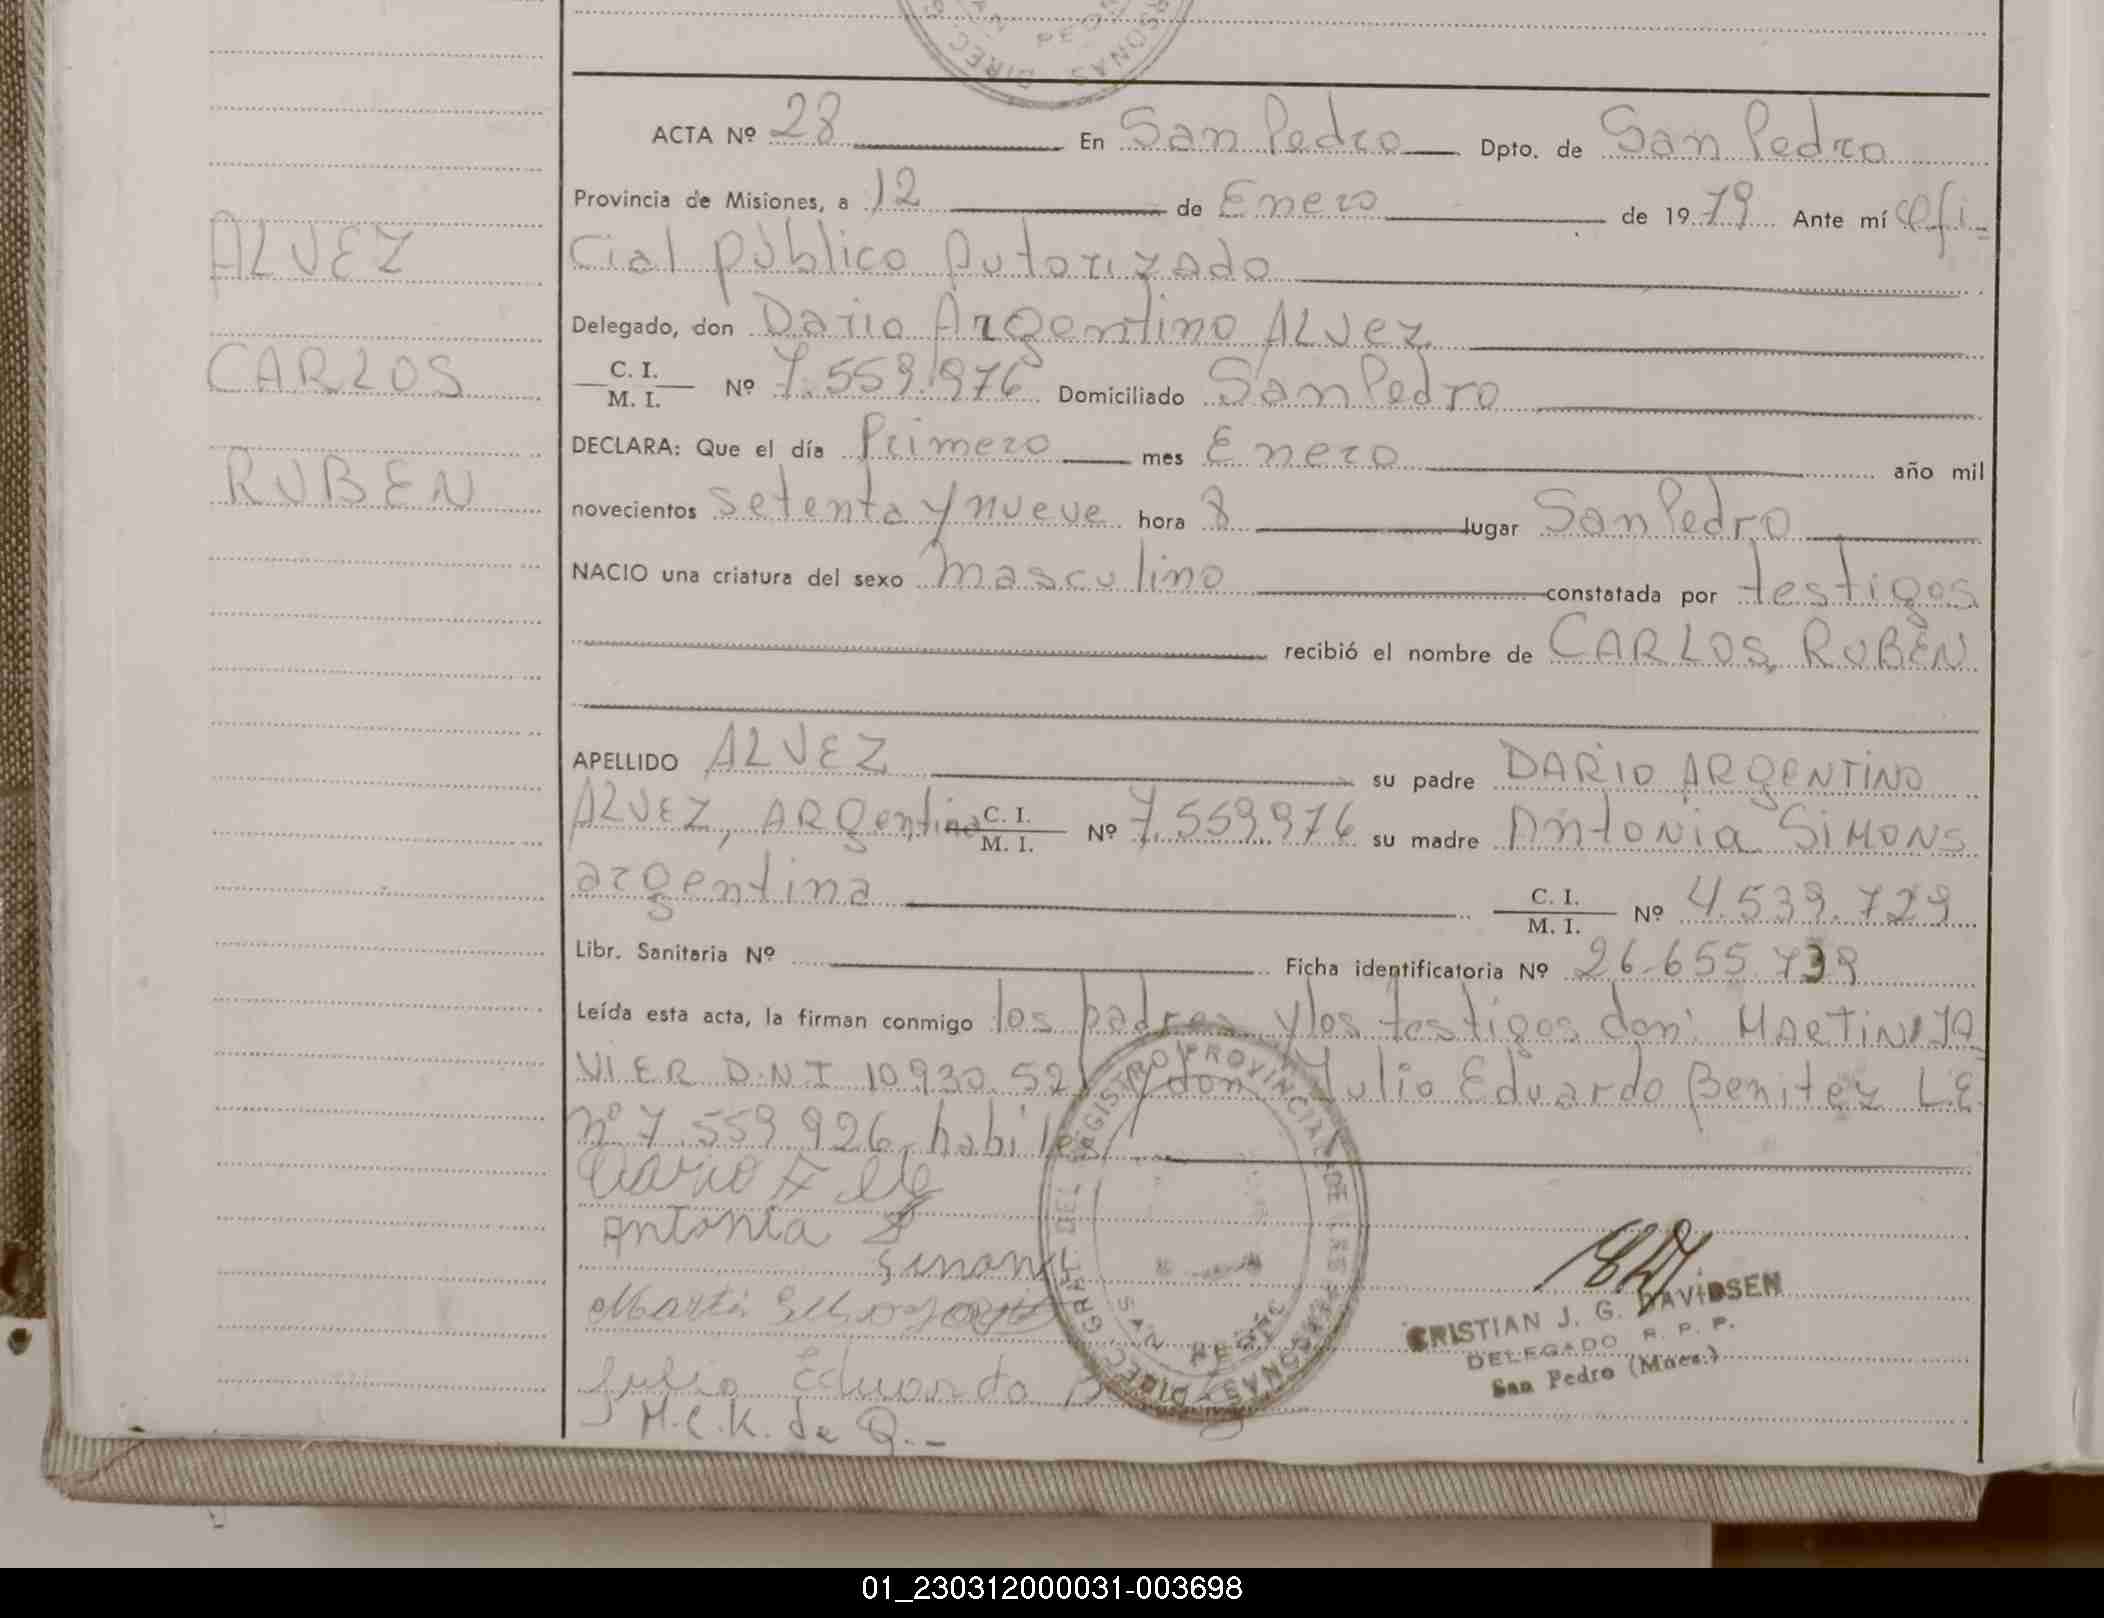 ACTA Nº 28 En San Pedro Dpto. de San Pedro
Provincia de Misiones, a 12 de Enero de 1979 Ante mí Ofi-
cial público Autorizado
ALVEZ
Delegado, don Dario Argentino ALVez
CARLOS
C. I. / M. I. Nº 7.559.976 Domiciliado San Pedro
DECLARA: Que el día Primero mes Enero año mil
RUBEN
novecientos setenta y nueve hora 8 lugar San Pedro
NACIO una criatura del sexo masculino constatada por testigos
recibió el nombre de CARLOS RUBEN
APELLIDO ALVEZ su padre DARIO ARGENTINO
ALVEZ, ARgentino C. I. / M. I. Nº 7.559.976 su madre Antonia SIMONS
argentina C. I. / M. I. Nº 4.539.729
Libr. Sanitaria Nº Ficha identificatoria Nº 26.655.739
Leída esta acta, la firman conmigo los padres y los testigos don: MARTIN JA
VIER D.N.I 10.930.521 y don Julio Eduardo Benitez L.E.
nº 7.559.926, habiles
Dario A
Antonia
Julio Eduardo
M.C.K. de Q.-
DIREC. GRAL. DEL REGISTRO PROVINCIAL DE LAS PERSONAS
SAN PEDRO
CRISTIAN J. G. DAVIDSEN
DELEGADO R. P. P.
San Pedro (Mnes.)
01_230312000031-003698